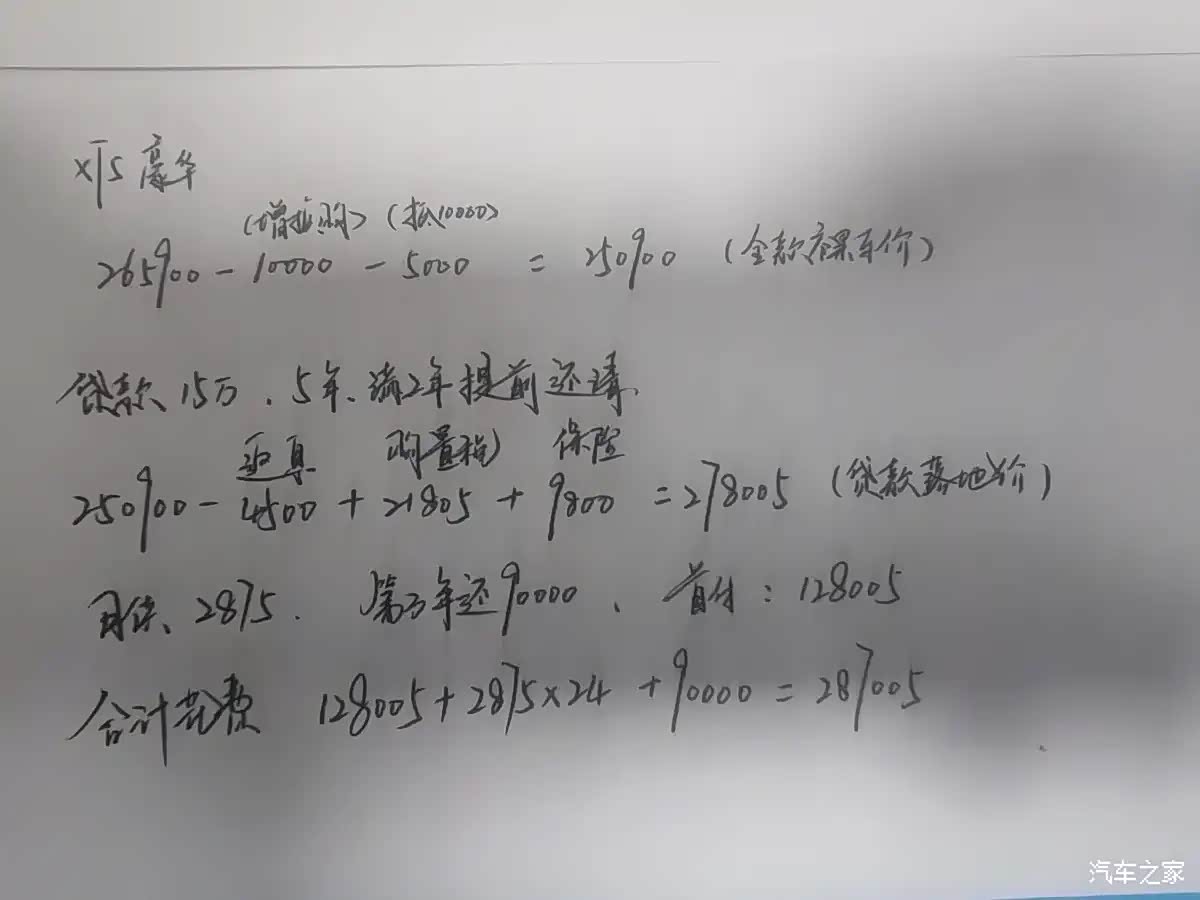 XT5 豪华
(增换购) (抵10000)
265900 - 10000 - 5000 = 250900 (全款裸车价)
贷款 15万、5年、满2年提前还清
返点 购置税 保险
250900 - 4500 + 21805 + 9800 = 278005 (贷款落地价)
月供、2875. 第三年还90000、首付：128005
合计花费 128005 + 2875×24 + 90000 = 287005
汽车之家